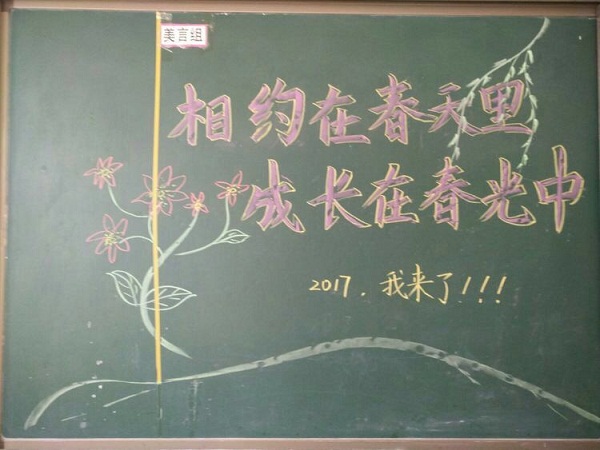 美言组
相约在春天里
成长在春光中
2017，我来了!!!